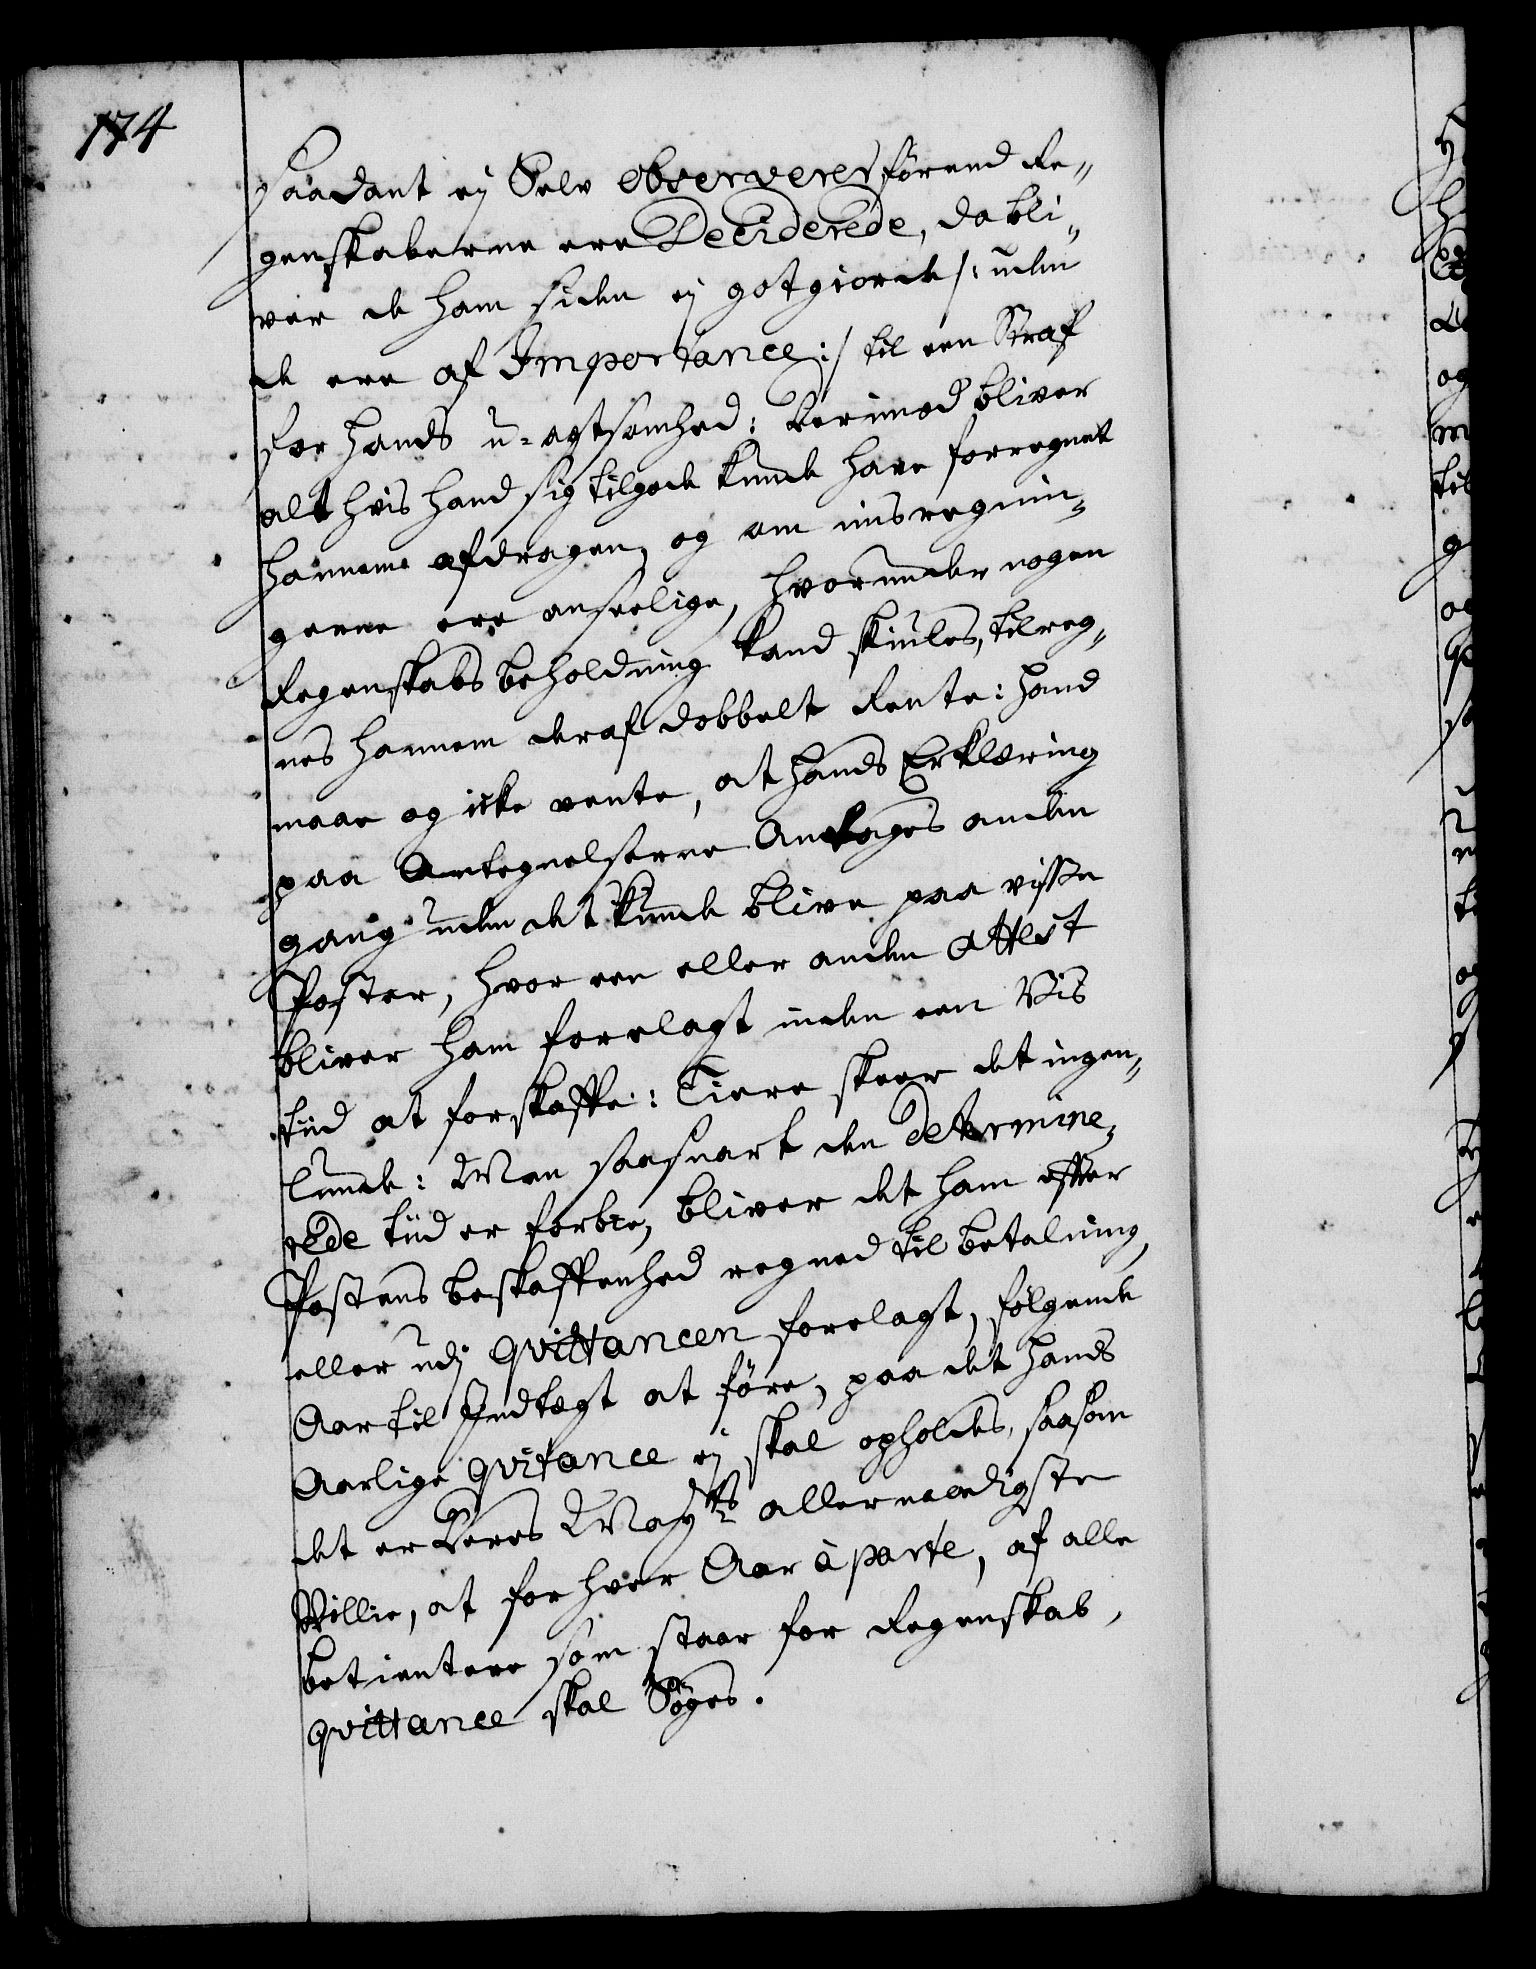 174
saadant ej Selv observeres förend Re„
genskaberne ere Deciderede, da bli„
ver de ham siden ej gotgiorde /: uden
de ere af Importance :/ til een Straf
for hands u-agtsomhed: derimod bliver
alt hvis hand sig tilgode kunde have forregnet
hannem afdragen, og om misregnin„
gerne ere anseelige, hvorunder nogen
Regenskabs beholdning kand skiules, tilreg„
nes hannem deraf dobbelt Rente: hand
maae og icke vente, at hands Erklæring
paa Antegnelserne Antages anden
gang uden det kunde blive paa visse
Poster, hvor een eller anden Attest
bliver ham forelagt inden een Vis
tiid at forskaffe: Tiere skeer det ingen„
lunde: Men saasnart den determine„
rede tiid er forbie, bliver det ham efter
Postens beskaffenhed regned til betalning,
eller udj qvittancen forelagt, fölgende
Aar til Indtægt at före, paa det hands
Aarlige qvitance ej skal opholdes, saasom
det er Deres Mayts allernaadigste
Villie, at for hver Aar à parte, af alle
betientere som staar for Regenskab,
qvittance skal Söges.